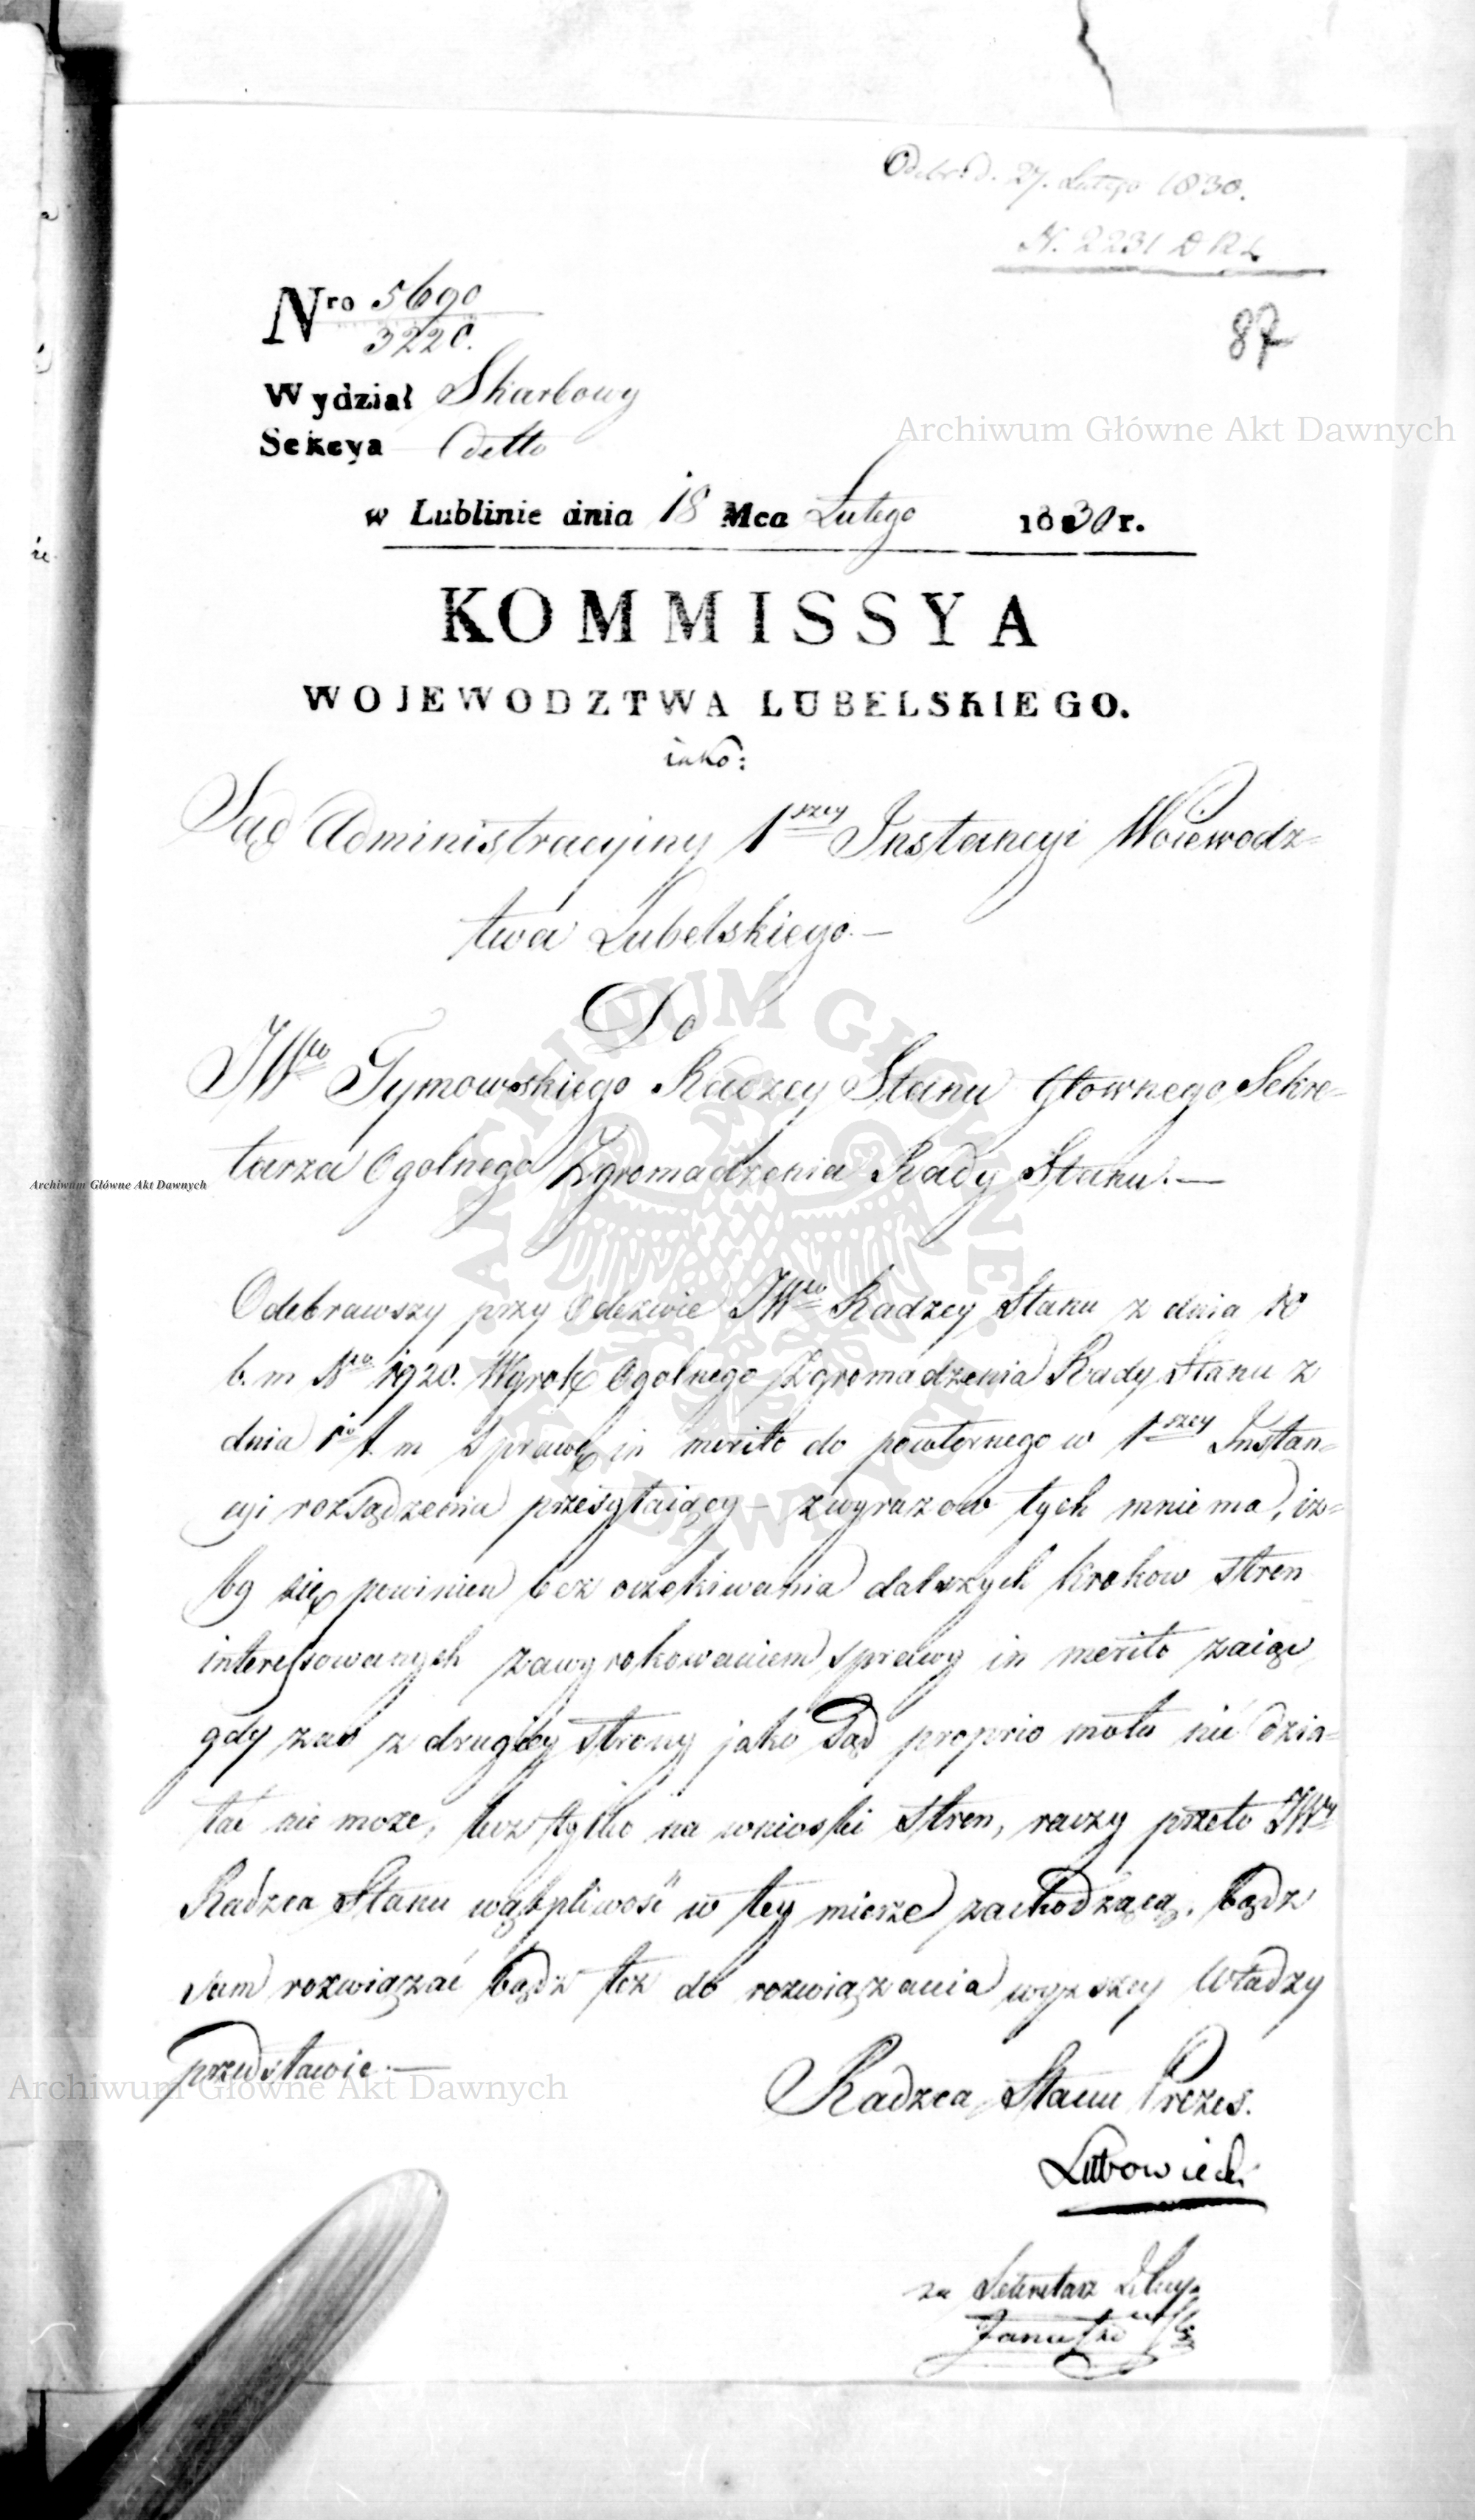 Odebr. d. 27. Lutego 1830.
N. 2231 D R S
87
Nro 5690
3220.
Wydział Skarbowy
Sekcya detto
w Lublinie dnia 18 Mca Lutego 1830 r.
KOMMISSYA
WOJEWODZTWA LUBELSKIEGO.
iako:
Sąd Administracyiny 1szey Instancyi Woiewodz-
twa Lubelskiego.—
Do
JWgo Tymowskiego Radzcy Stanu Głownego Sekre-
tarza Ogolnego Zgromadzenia Rady Stanu.—
Odebrawszy przy Odezwie JWgo Radzcy Stanu z dnia 10
b. m Nro 1920. Wyrok Ogolnego Zgromadzenia Rady Stanu z
dnia 1go t. m Sprawę in merito do powtornego w 1szey Instan-
cyi rozsądzenia przesyłaiący — z wyrazow tych mniema, iż-
by się powinien bez oczekiwania dalszych krokow stron
interessowanych zawyrokowaniem sprawy in merito zaiąć,
gdy zaś z drugiey strony jako Sąd proprio motu nie dzia-
łać nie może, lecz tylko na wnioski stron, raczy przeto JWny
Radzca Stanu wątpliwość w tey mierze zachodzącą, bądź
sam rozwiązać bądź też do rozwiązania wyższey Władzy
przedstawić.—
Radzca Stanu Prezes.
Lubowiecki
za Sekretarz
Archiwum Główne Akt Dawnych
Archiwum Główne Akt Dawnych
Archiwum Główne Akt Dawnych
ARCHIWUM GŁÓWNE AKT DAWNYCH